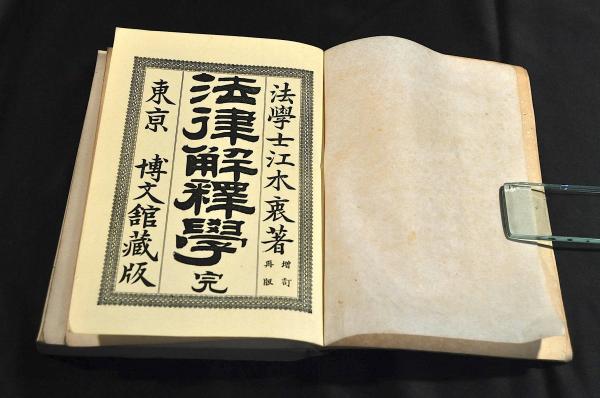 法學士江木衷著
增訂
再版
法律解釋學 完
東亰 博文館藏版